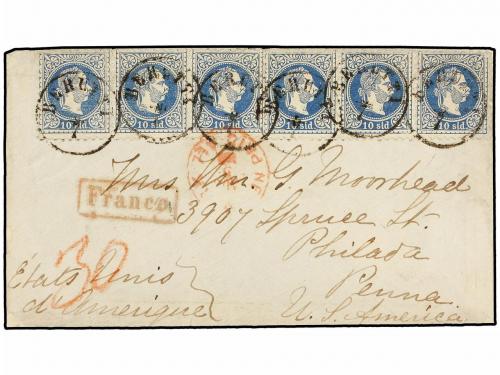 10 sld 10 sld 10 sld 10 sld 10 sld 10 sld
Franco
Mrs Wm. G. Moorhead
3907 Spruce St.
Philada
Penna.
U. S. America.
30
États Unis
d'Amerique